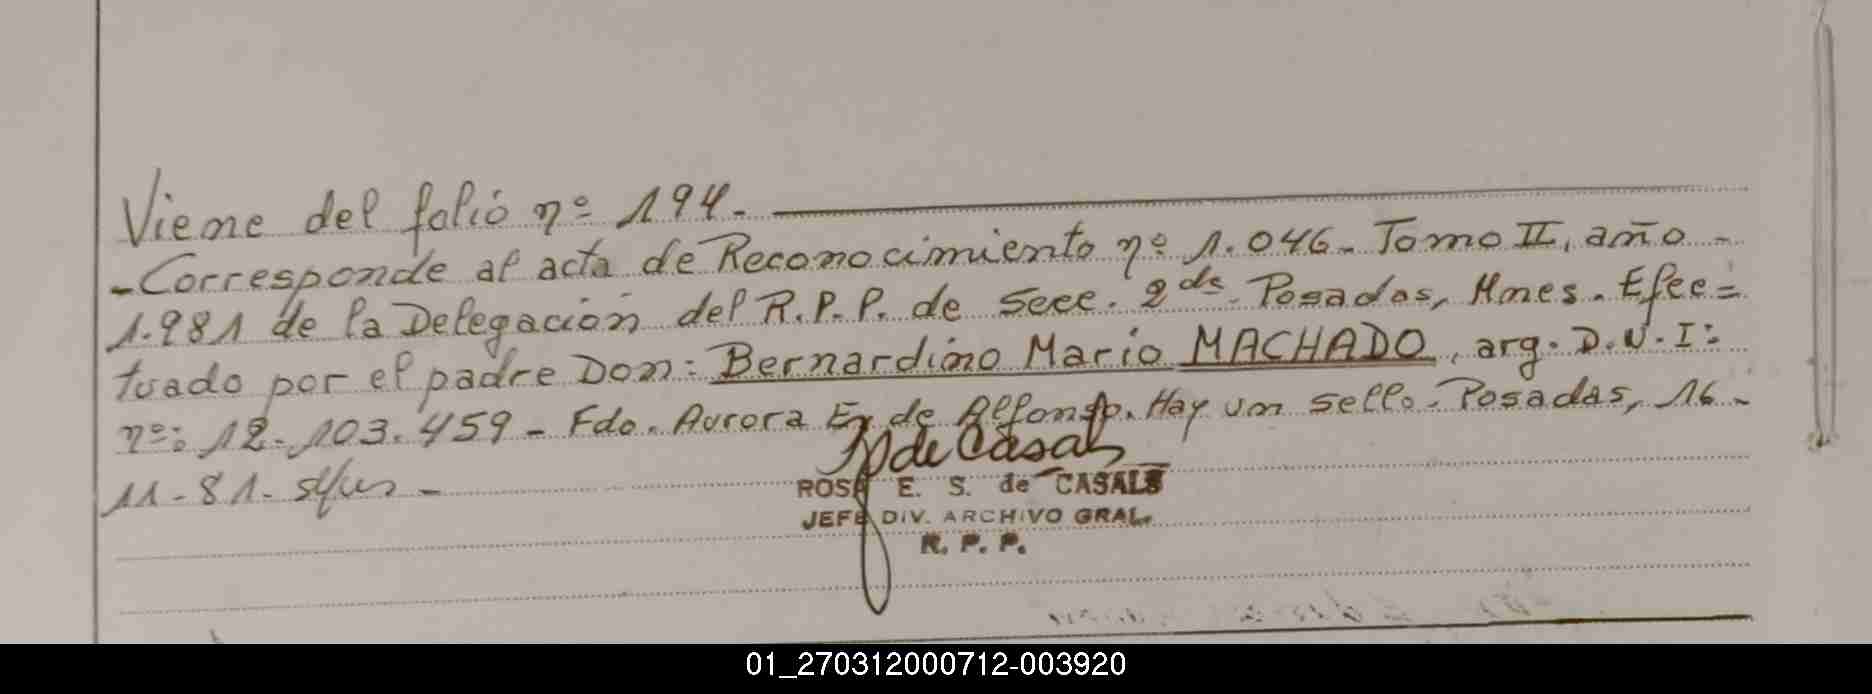 Viene del folio nº 194.
- Corresponde al acta de Reconocimiento nº 1.046 - Tomo II, año -
1.981 de la Delegación del R.P.P. de Secc. 2da. Posadas, Mnes. Efec=
tuado por el padre Don: Bernardino Mario MACHADO, arg. D.N.I:
nº: 12.103.459 - Fdo. Aurora E. de Alfonso. Hay un sello - Posadas, 16 -
11 - 81.
de Casals
ROSA E. S. de CASALS
JEFE DIV. ARCHIVO GRAL.
R. P. P.
01_270312000712-003920